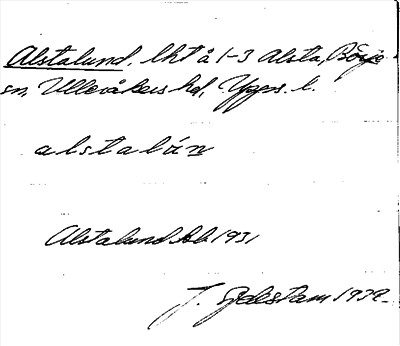 Alstalund, lht å 1-3 Alsta, Börje
sn, Ulleråkers hd, Upps. l.
alstalún
Alstalund kb 1931
J. Sjdestam 1938